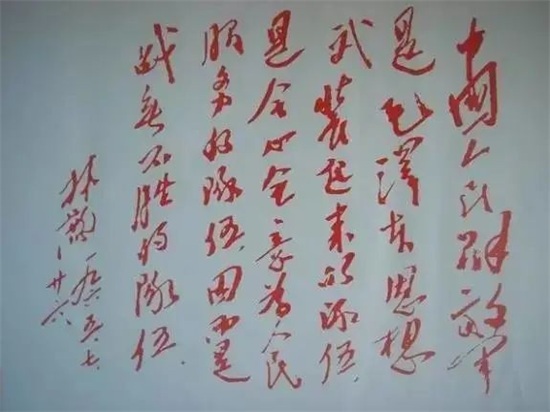 中國人民解放军
是毛泽东思想
武装起来的队伍，
是全心全意为人民
服务的队伍，因而是
战无不胜的队伍。
林彪
一九六五·七·廿六